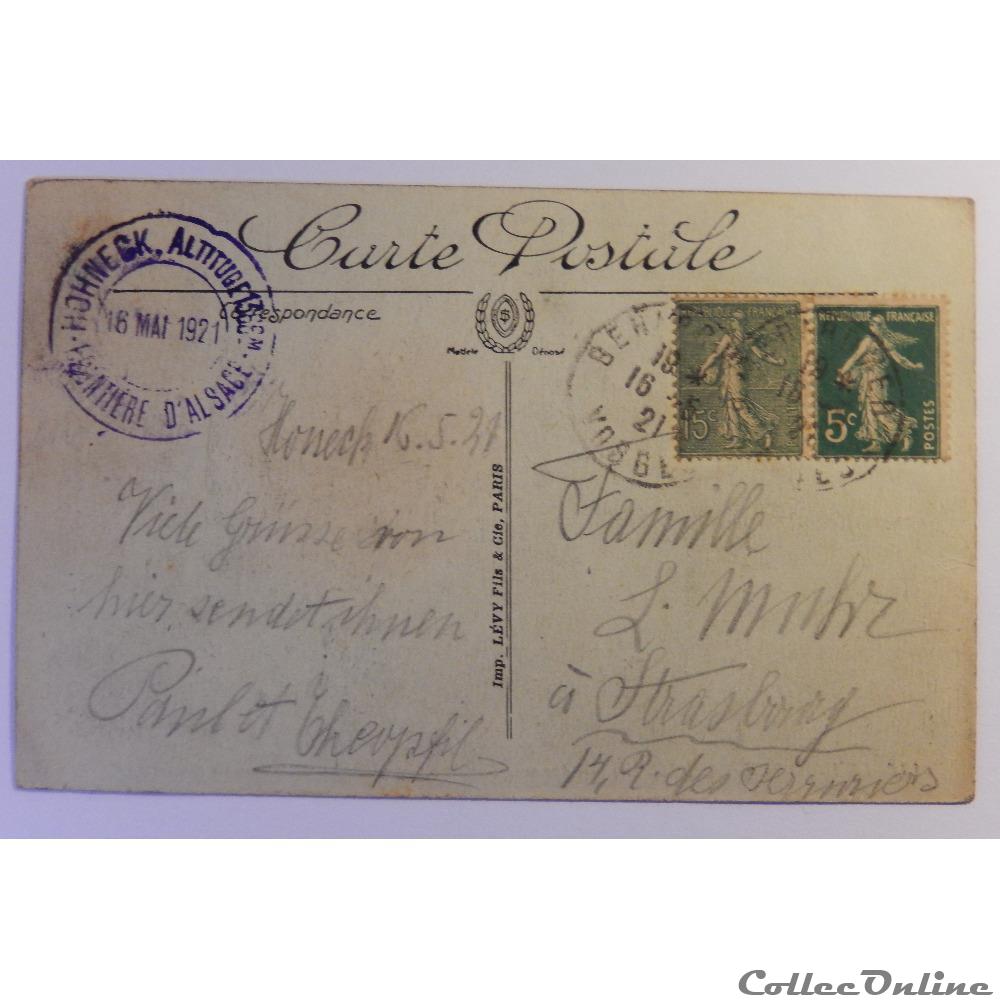 Carte Postale
HOHNECK. ALTITUDE
16 MAI 1921
FRONTIÈRE D'ALSACE
Correspondance
Modèle Déposé
RÉPUBLIQUE FRANÇAISE
15c
RÉPUBLIQUE FRANÇAISE
5c
POSTES
16
21
VOSGES
Honeck 16.5.21
Viele Grüsse von
hier sendet ihnen
Paul et Theopfil
Imp. LÉVY Fils & Cie, PARIS
Famille
L. Muhr
à Strasbourg
14, R. des Serruriers
CollecOnline